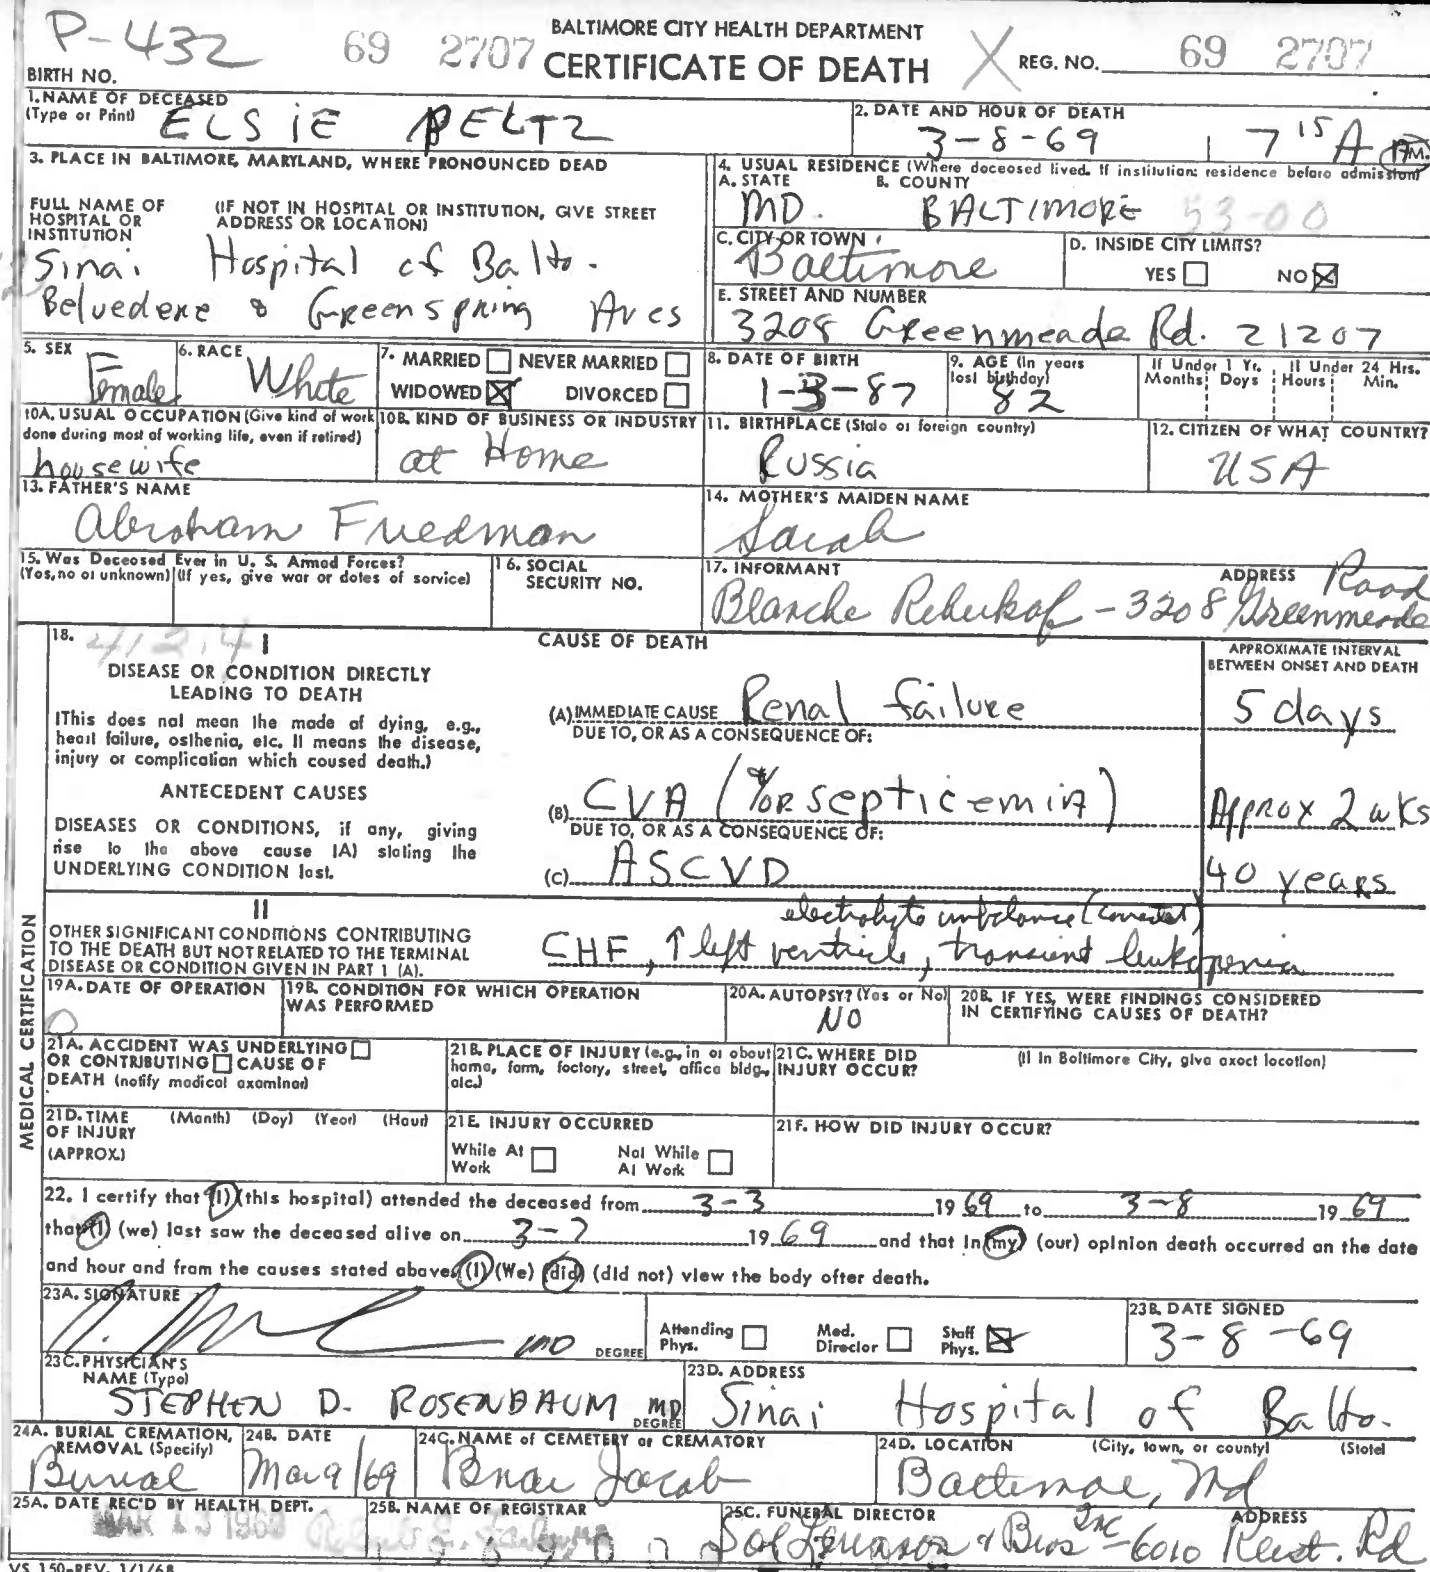 P-432
69 2707
BALTIMORE CITY HEALTH DEPARTMENT
CERTIFICATE OF DEATH
X
REG. NO. 69 2707
BIRTH NO.
1. NAME OF DECEASED
(Type or Print) ELSIE PELTZ
2. DATE AND HOUR OF DEATH
3-8-69 7 15 A M.
3. PLACE IN BALTIMORE, MARYLAND, WHERE PRONOUNCED DEAD
FULL NAME OF HOSPITAL OR INSTITUTION
(IF NOT IN HOSPITAL OR INSTITUTION, GIVE STREET ADDRESS OR LOCATION)
Sinai Hospital of Balto.
Belvedere & Greenspring Aves
4. USUAL RESIDENCE (Where deceased lived. If institution: residence before admission)
A. STATE B. COUNTY
MD. BALTIMORE 53-00
C. CITY OR TOWN
Baltimore
D. INSIDE CITY LIMITS?
YES NO
E. STREET AND NUMBER
3208 Greenmeade Rd. 21207
5. SEX
Female
6. RACE
White
7. MARRIED NEVER MARRIED
WIDOWED DIVORCED
8. DATE OF BIRTH
1-3-87
9. AGE (In years last birthday)
82
If Under 1 Yr. Months Days
If Under 24 Hrs. Hours Min.
10A. USUAL OCCUPATION (Give kind of work done during most of working life, even if retired)
housewife
10B. KIND OF BUSINESS OR INDUSTRY
at Home
11. BIRTHPLACE (State or foreign country)
Russia
12. CITIZEN OF WHAT COUNTRY?
USA
13. FATHER'S NAME
Abraham Friedman
14. MOTHER'S MAIDEN NAME
Sarah
15. Was Deceased Ever in U. S. Armed Forces?
(Yes, no or unknown) (If yes, give war or dates of service)
16. SOCIAL SECURITY NO.
17. INFORMANT ADDRESS
Blanche - 3208 Greenmeade Road
MEDICAL CERTIFICATION
18. 412.4 I
CAUSE OF DEATH
APPROXIMATE INTERVAL BETWEEN ONSET AND DEATH
DISEASE OR CONDITION DIRECTLY LEADING TO DEATH
(This does not mean the mode of dying, e.g., heart failure, asthenia, etc. It means the disease, injury or complication which caused death.)
(A) IMMEDIATE CAUSE Renal failure 5 days
DUE TO, OR AS A CONSEQUENCE OF:
ANTECEDENT CAUSES
DISEASES OR CONDITIONS, if any, giving rise to the above cause (A) stating the UNDERLYING CONDITION last.
(B) CVA (&/or septicemia) Approx 2 wks
DUE TO, OR AS A CONSEQUENCE OF:
(C) ASCVD 40 years
II
OTHER SIGNIFICANT CONDITIONS CONTRIBUTING TO THE DEATH BUT NOT RELATED TO THE TERMINAL DISEASE OR CONDITION GIVEN IN PART 1 (A).
electrolyte imbalance (corrected)
CHF, ↑ left ventricle, transient leukopenia
19A. DATE OF OPERATION
0
19B. CONDITION FOR WHICH OPERATION WAS PERFORMED
20A. AUTOPSY? (Yes or No)
NO
20B. IF YES, WERE FINDINGS CONSIDERED IN CERTIFYING CAUSES OF DEATH?
21A. ACCIDENT WAS UNDERLYING OR CONTRIBUTING CAUSE OF DEATH (notify medical examiner)
21B. PLACE OF INJURY (e.g., in or about home, farm, factory, street, office bldg., etc.)
21C. WHERE DID INJURY OCCUR? (If in Baltimore City, give exact location)
21D. TIME OF INJURY (APPROX.) (Month) (Day) (Year) (Hour)
21E. INJURY OCCURRED
While At Work Not While At Work
21F. HOW DID INJURY OCCUR?
22. I certify that (I) (this hospital) attended the deceased from 3-3 1969 to 3-8 1969
that (I) (we) last saw the deceased alive on 3-7 1969 and that in (my) (our) opinion death occurred on the date
and hour and from the causes stated above. (I) (We) (did) (did not) view the body after death.
23A. SIGNATURE
MD DEGREE
Attending Phys. Med. Director Staff Phys.
23B. DATE SIGNED
3-8-69
23C. PHYSICIAN'S NAME (Type)
STEPHEN D. ROSENBAUM MD DEGREE
23D. ADDRESS
Sinai Hospital of Balto.
24A. BURIAL CREMATION, REMOVAL (Specify)
Burial
24B. DATE
Mar 9/69
24C. NAME of CEMETERY or CREMATORY
Bnai Jacob
24D. LOCATION (City, town, or county) (State)
Baltimore, Md
25A. DATE REC'D BY HEALTH DEPT.
MAR 13 1969
25B. NAME OF REGISTRAR
25C. FUNERAL DIRECTOR ADDRESS
Sol Levinson & Bros Inc - 6010 Reist. Rd
VS 150-REV. 1/1/68